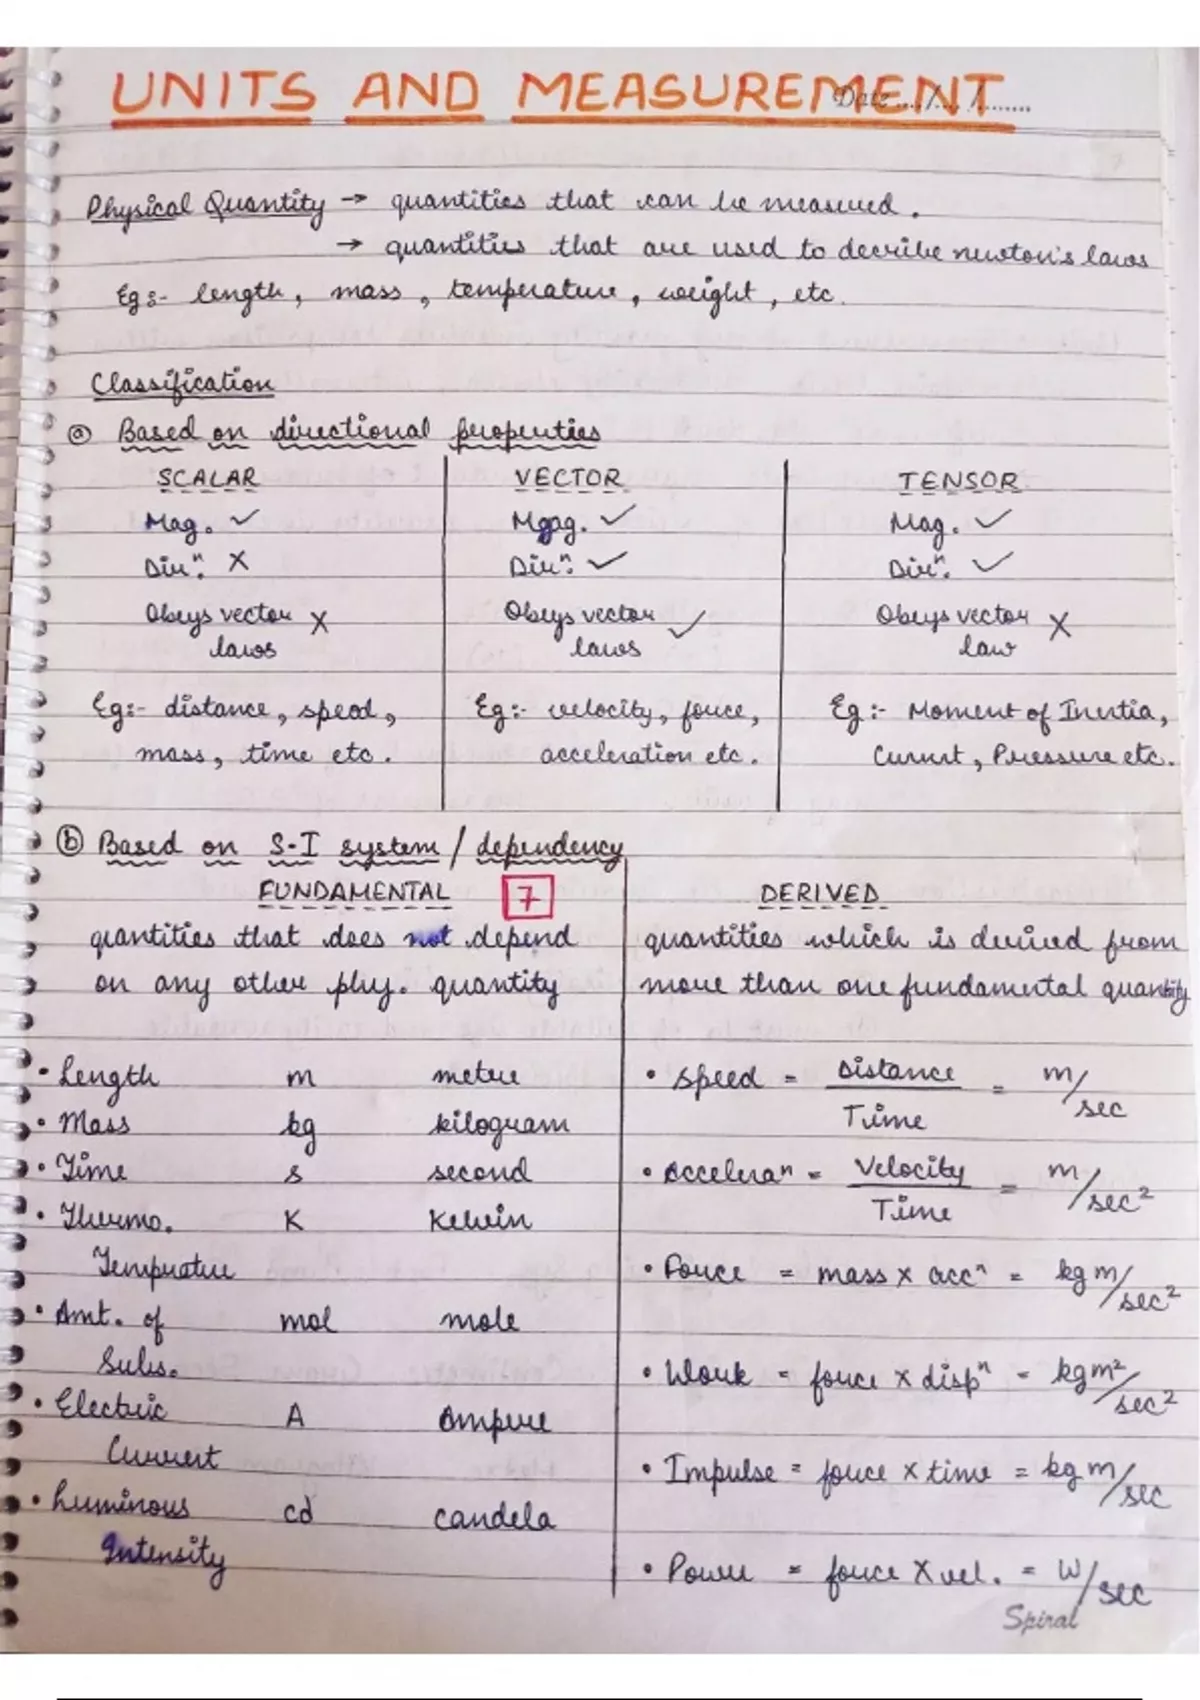 UNITS AND MEASUREMENT
Date ..../..../.........
Physical Quantity → quantities that can be measured.
→ quantities that are used to decribe newton's laws
Eg:- length, mass, temperature, weight, etc.
Classification
(a) Based on directional properties
SCALAR VECTOR TENSOR
Mag. ✓ Mgag. ✓ Mag. ✓
Dirⁿ. × Dirⁿ. ✓ Dirⁿ. ✓
Obeys vector × Obeys vector ✓ Obeys vector ×
laws laws law
Eg:- distance, speed, Eg:- velocity, force, Eg:- Moment of Inertia,
mass, time etc. acceleration etc. Currnt, Pressure etc.
(b) Based on S-I system / dependency
FUNDAMENTAL 7 DERIVED
quantities that does not depend quantities which is derived from
on any other phy. quantity more than one fundamental quantity
• Length m metre • Speed = Distance/Time = m/sec
• Mass kg kilogram
• Time s second • Acceleraⁿ = Velocity/Time = m/sec²
• Thermo. K Kelvin
Tempratur • Force = mass × accⁿ = kg m/sec²
• Amt. of mol mole
Subs. • Work = force × dispⁿ = kgm²/sec²
• Electric A Ampere
Current • Impulse = force × time = kg m/sec
• Luminous cd candela
Intensity • Power = force × vel. = W/sec
Spiral